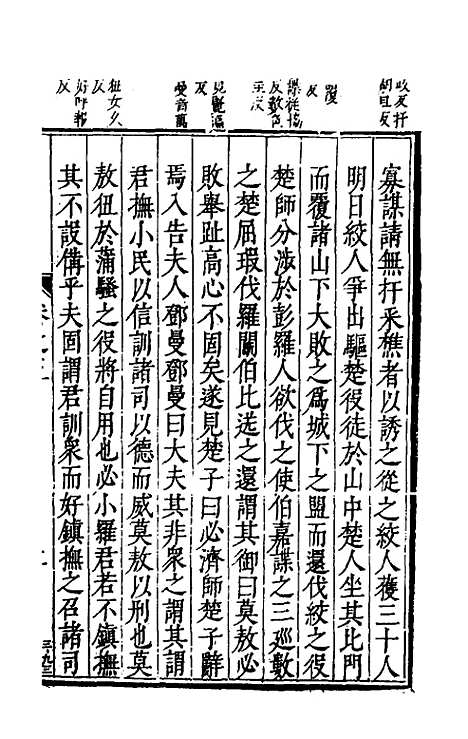 寡謀請無扞采樵者以誘之從之絞人獲三十人
明日絞人爭出驅楚役徒於山中楚人坐其北門
而覆諸山下大敗之爲城下之盟而還伐絞之役
楚師分涉於彭羅人欲伐之使伯嘉諜之三巡數
之楚屈瑕伐羅鬬伯比送之還謂其御曰莫敖必
敗舉趾高心不固矣遂見楚子曰必濟師楚子辭
焉入告夫人鄧曼鄧曼曰大夫其非衆之謂其謂
君撫小民以信訓諸司以德而威莫敖以刑也莫
敖狃於蒲騷之役將自用也必小羅君若不鎮撫
其不設備乎夫固謂君訓衆而好鎮撫之召諸司